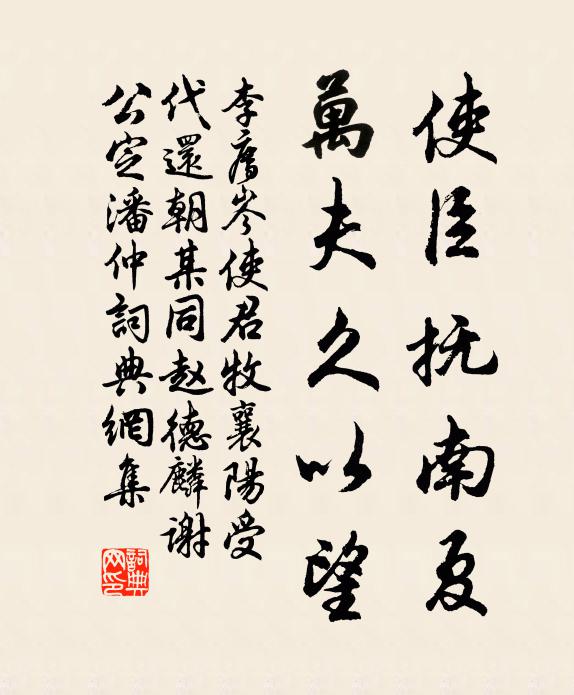 使臣抚南夏
萬夫久以望
李膺岑使君牧襄陽受
代還朝某同赵德麟谢
公定潘仲詞典網集
詞典网印